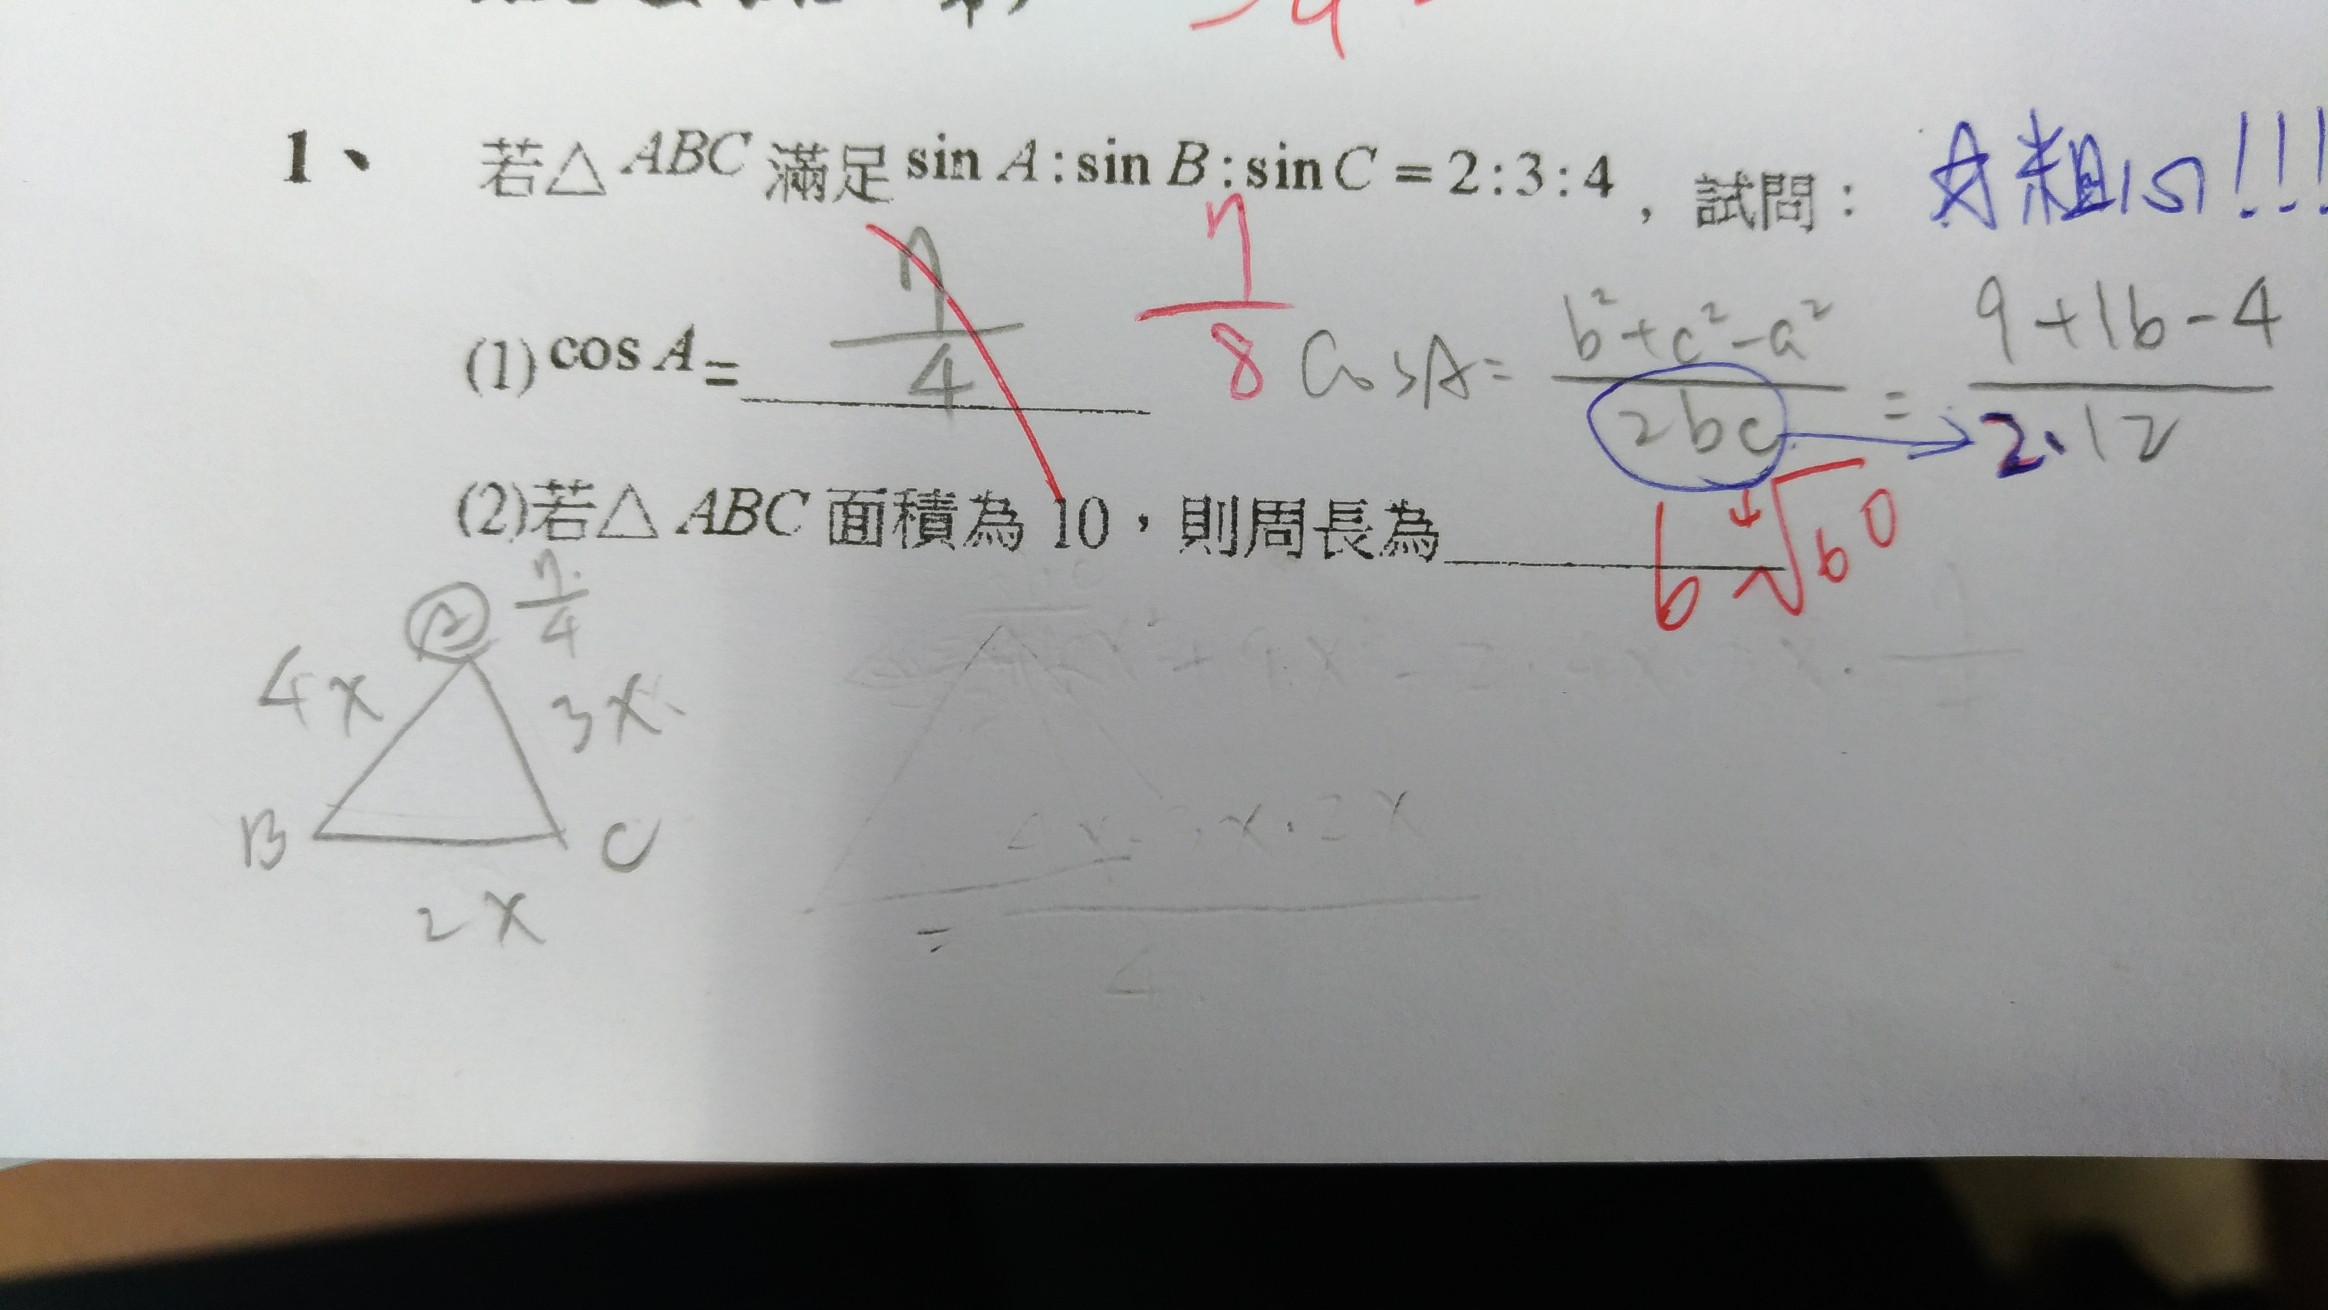 1、 若△ABC 滿足 sin A : sin B : sin C = 2 : 3 : 4 , 試問: ☆粗心!!!
7/4 7/8
(1) cos A = cosA = b²+c²-a² / 2bc = 9+16-4 / 2·12
(2)若△ABC 面積為 10,則周長為 6√60
A 7/4
4x 3x
B C
2x